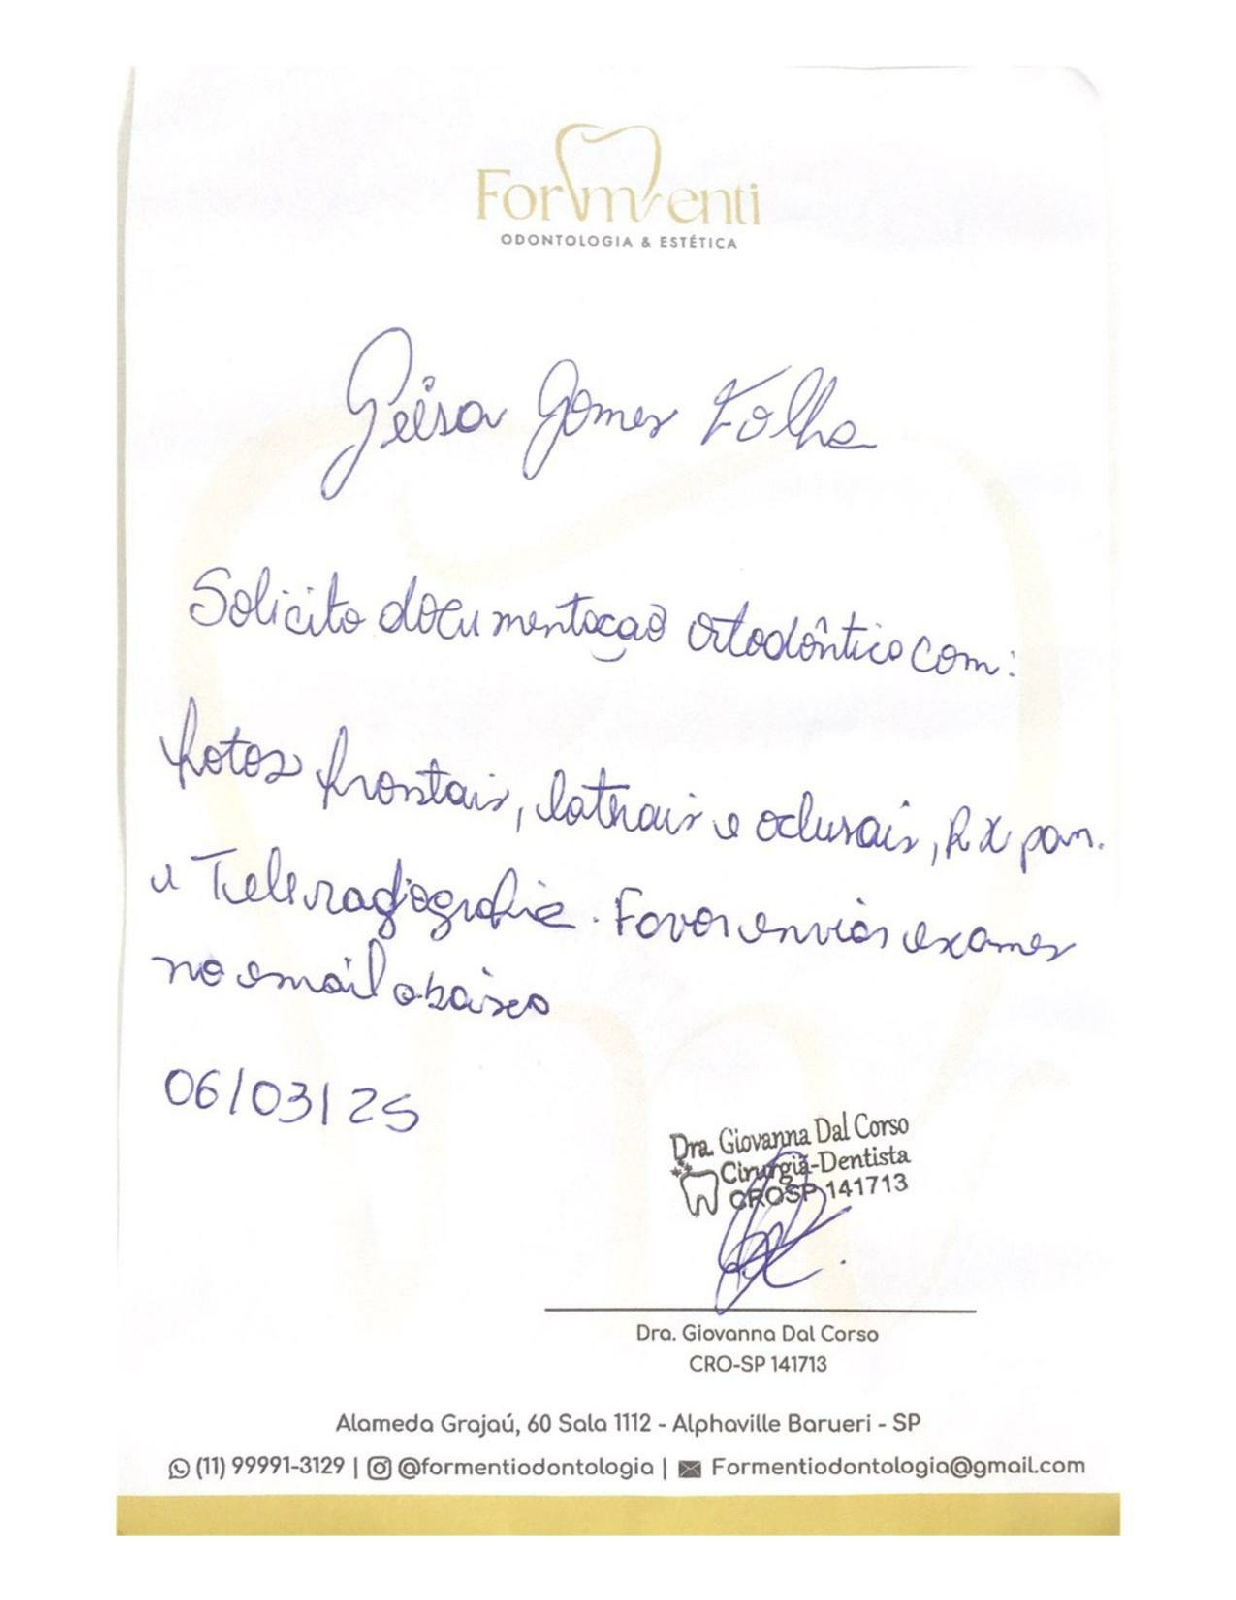 Formenti
ODONTOLOGIA & ESTÉTICA
Geisa Gomes Folha
Solicito documentação ortodôntica com:
fotos frontais, laterais e oclusais, RX pan.
e Teleradiografia. Favor enviar exames
no email abaixo
06/03/25
Dra. Giovanna Dal Corso
Cirurgiã-Dentista
CROSP 141713
Dra. Giovanna Dal Corso
CRO-SP 141713
Alameda Grajaú, 60 Sala 1112 - Alphaville Barueri - SP
(11) 99991-3129 | @formentiodontologia | Formentiodontologia@gmail.com